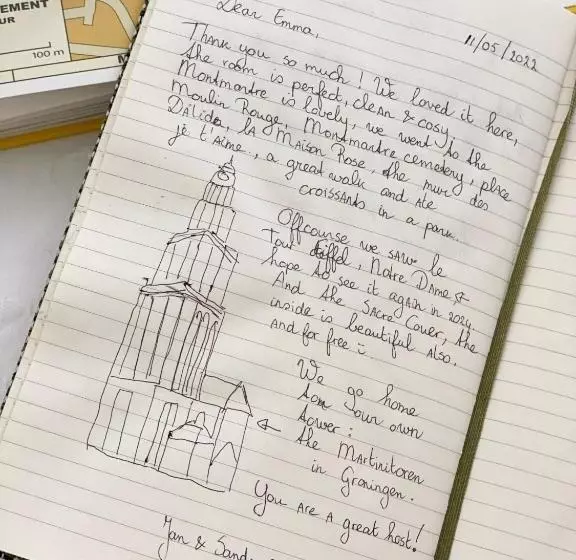 EMENT
UR
100 m
M
Dear Emma,
11/05/2022
Thank you so much! We loved it here,
the room is perfect, clean & cosy
Montmartre is lovely, we went to the
Moulin Rouge, Montmartre cemetery, place
Dalida, la Maison Rose, the mur des
je t'aime, a great walk and ate
croissants in a park.
Offcourse we saw le
Tour Eiffel, Notre Dame &
hope to see it again in 2024.
And the Sacre Couer, the
inside is beautiful also.
And for free :
We go home
to our own
tower:
the Martinitoren
in Groningen.
You are a great host!
Jan &